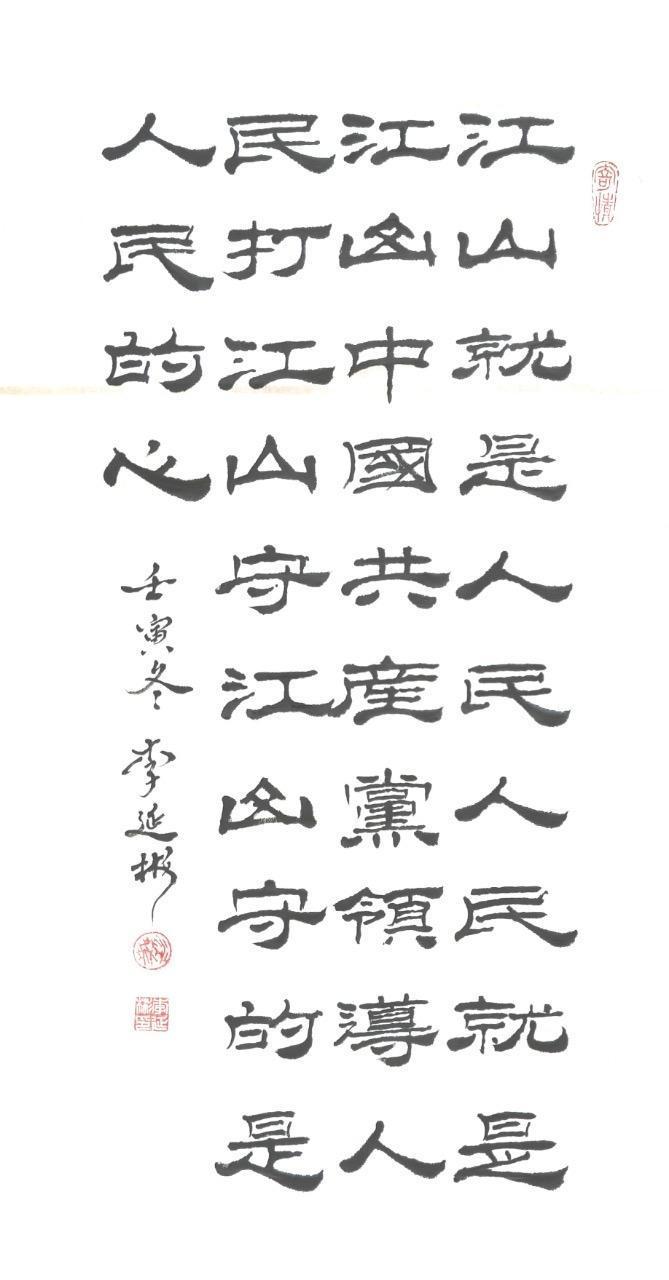 寄情
江山就是人民人民就是
江山中國共産黨領導人
民打江山守江山守的是
人民的心
壬寅冬 李延彬